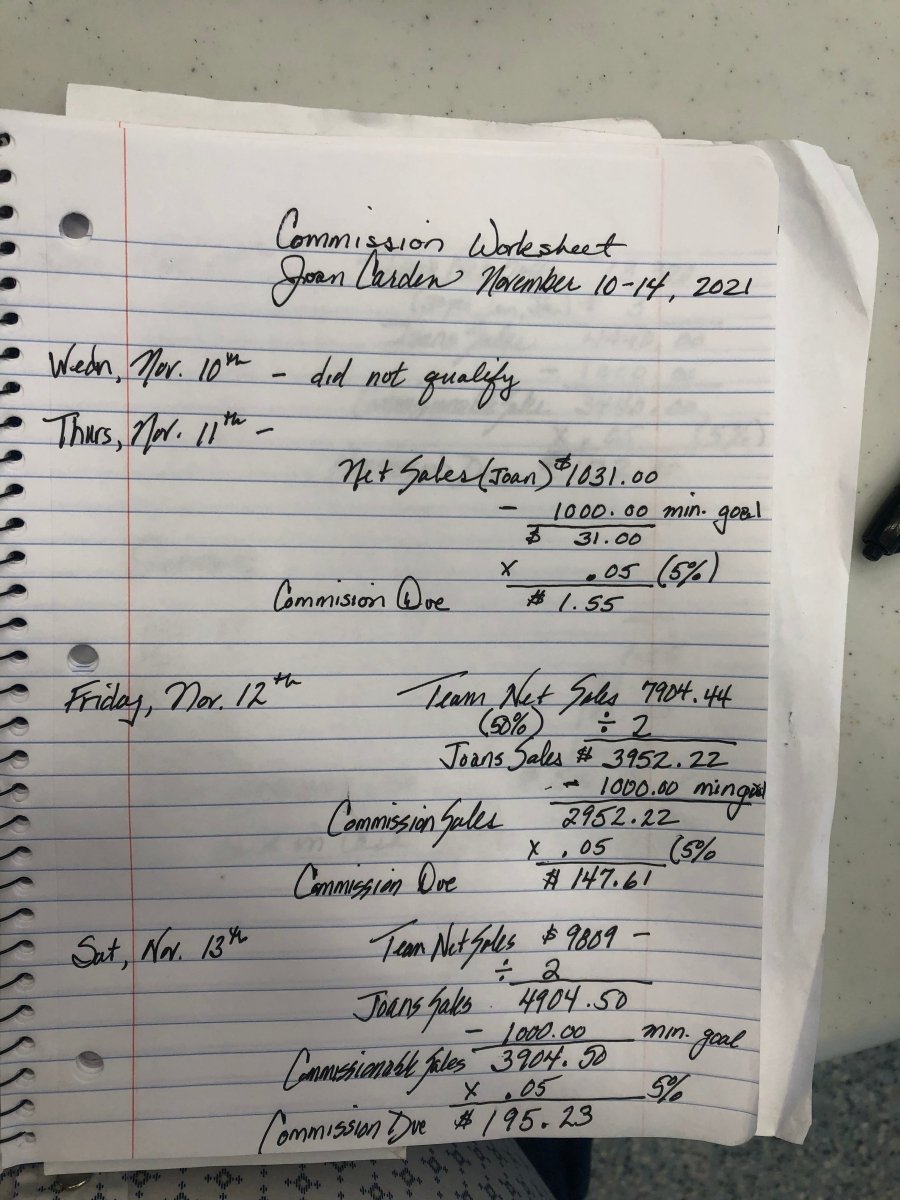 Commission Worksheet
Joan Carden November 10-14, 2021
Wedn, Nov. 10th - did not qualify
Thurs, Nov. 11th -
Net Sales (Joan) $1031.00
- 1000.00 min. goal
$ 31.00
x .05 (5%)
Commision Due $ 1.55
Friday, Nov. 12th Team Net Sales 7904.44
(50%) ÷ 2
Joans Sales $ 3952.22
- 1000.00 min goal
Commission Sales 2952.22
x .05 (5%
Commission Due $ 147.61
Sat, Nov. 13th Team Net Sales $ 9809 -
÷ 2
Joans Sales 4904.50
- 1000.00 min. goal
Commissionable Sales 3904.50
x .05 5%
Commission Due $ 195.23